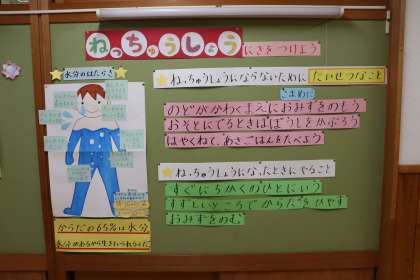 ねっちゅうしょうにきをつけよう
水分のはたらき
ねっちゅうしょうにならないために たいせつなこと
こまめに
のどがかわくまえにおみずをのもう
おそとにでるときはぼうしをかぶろう
はやくねて、あさごはんをたべよう
ねっちゅうしょうになったときにやること
すぐにちかくのひとにいう
すずしいところでからだをひやす
おみずをのむ
からだの65%は水分
水分があるから生きていられるんだ